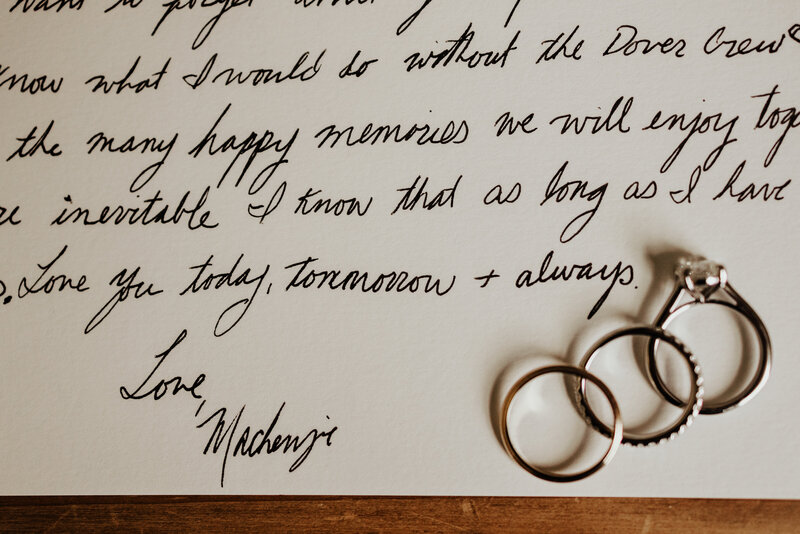 want to forget
know what I would do without the Dover Crew
the many happy memories we will enjoy tog
re inevitable I know that as long as I have
s. Love you today, tommorrow + always.
Love,
Mackenzie